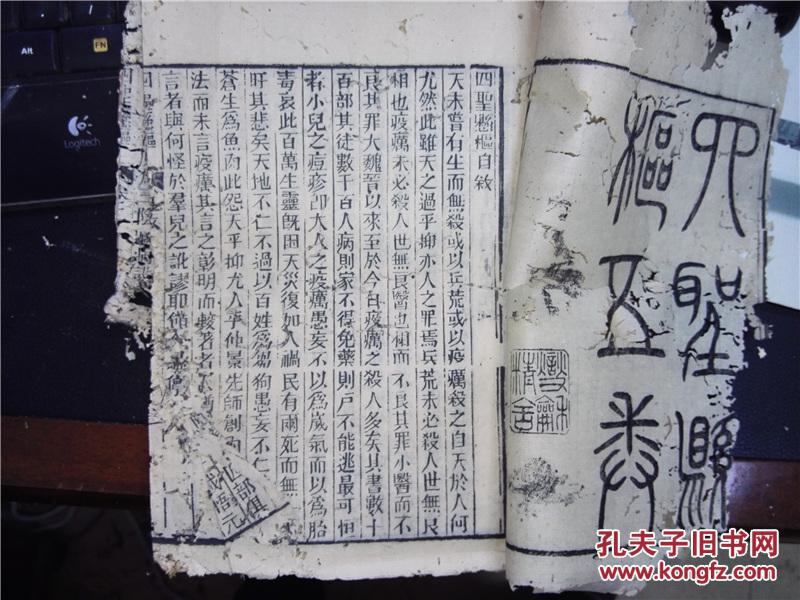 四聖懸
樞五卷
燮龢
精舍
四聖懸樞自敘
天未嘗有生而無殺或以兵荒或以疫癘殺之自天於人何
尤然此雖天之過乎抑亦人之罪焉兵荒未必殺人世無良
相也疫癘未必殺人世無良醫也相而不良其罪小醫而不
良其罪大魏晉以來至於今日疫癘之殺人多矣其書數十
百部其徒數千百人病則家不得免藥則戶不能逃最可恨
者小兒之痘疹即大人之疫癘愚妄不以爲歲氣而以爲胎
毒哀此百萬生靈旣困天災復加人禍民有兩死而無
吁其悲矣天地不仁不過以百姓爲芻狗愚妄不仁
蒼生爲魚肉此怨天乎抑尤人乎仲景先師創
法而未言疫癘其言之彰明而較著者
言者與何怪於羣兒之訛謬耶僕
Alt
FN
Logitech
孔夫子旧书网
www.kongfz.com